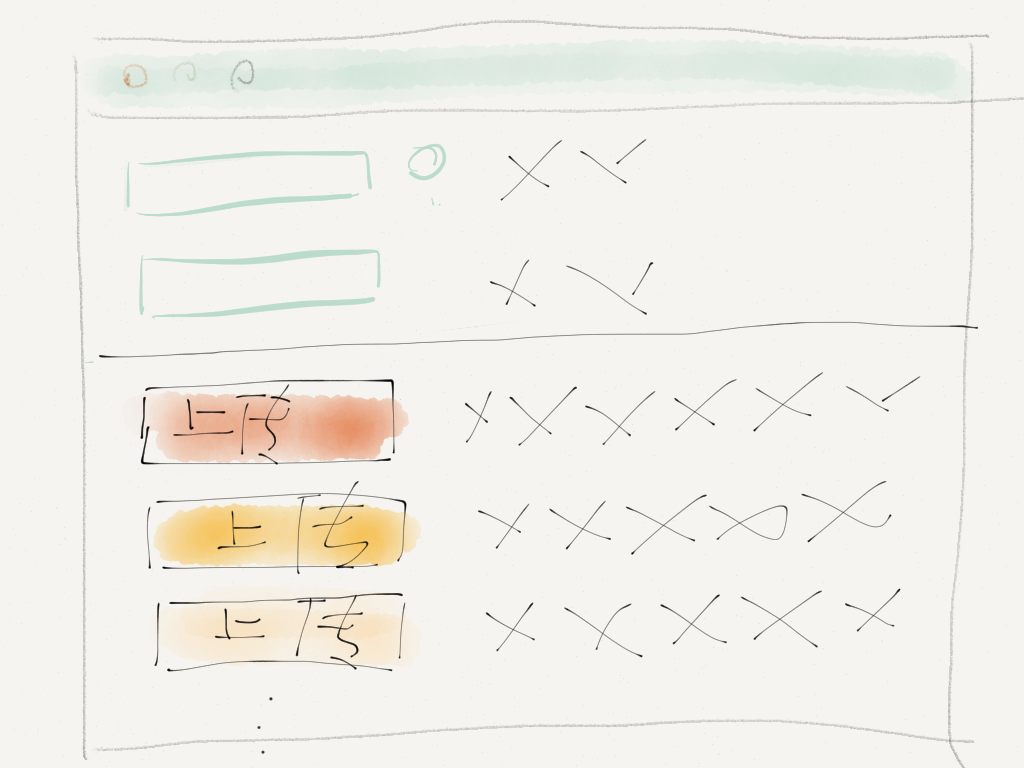 上传
上传
上传